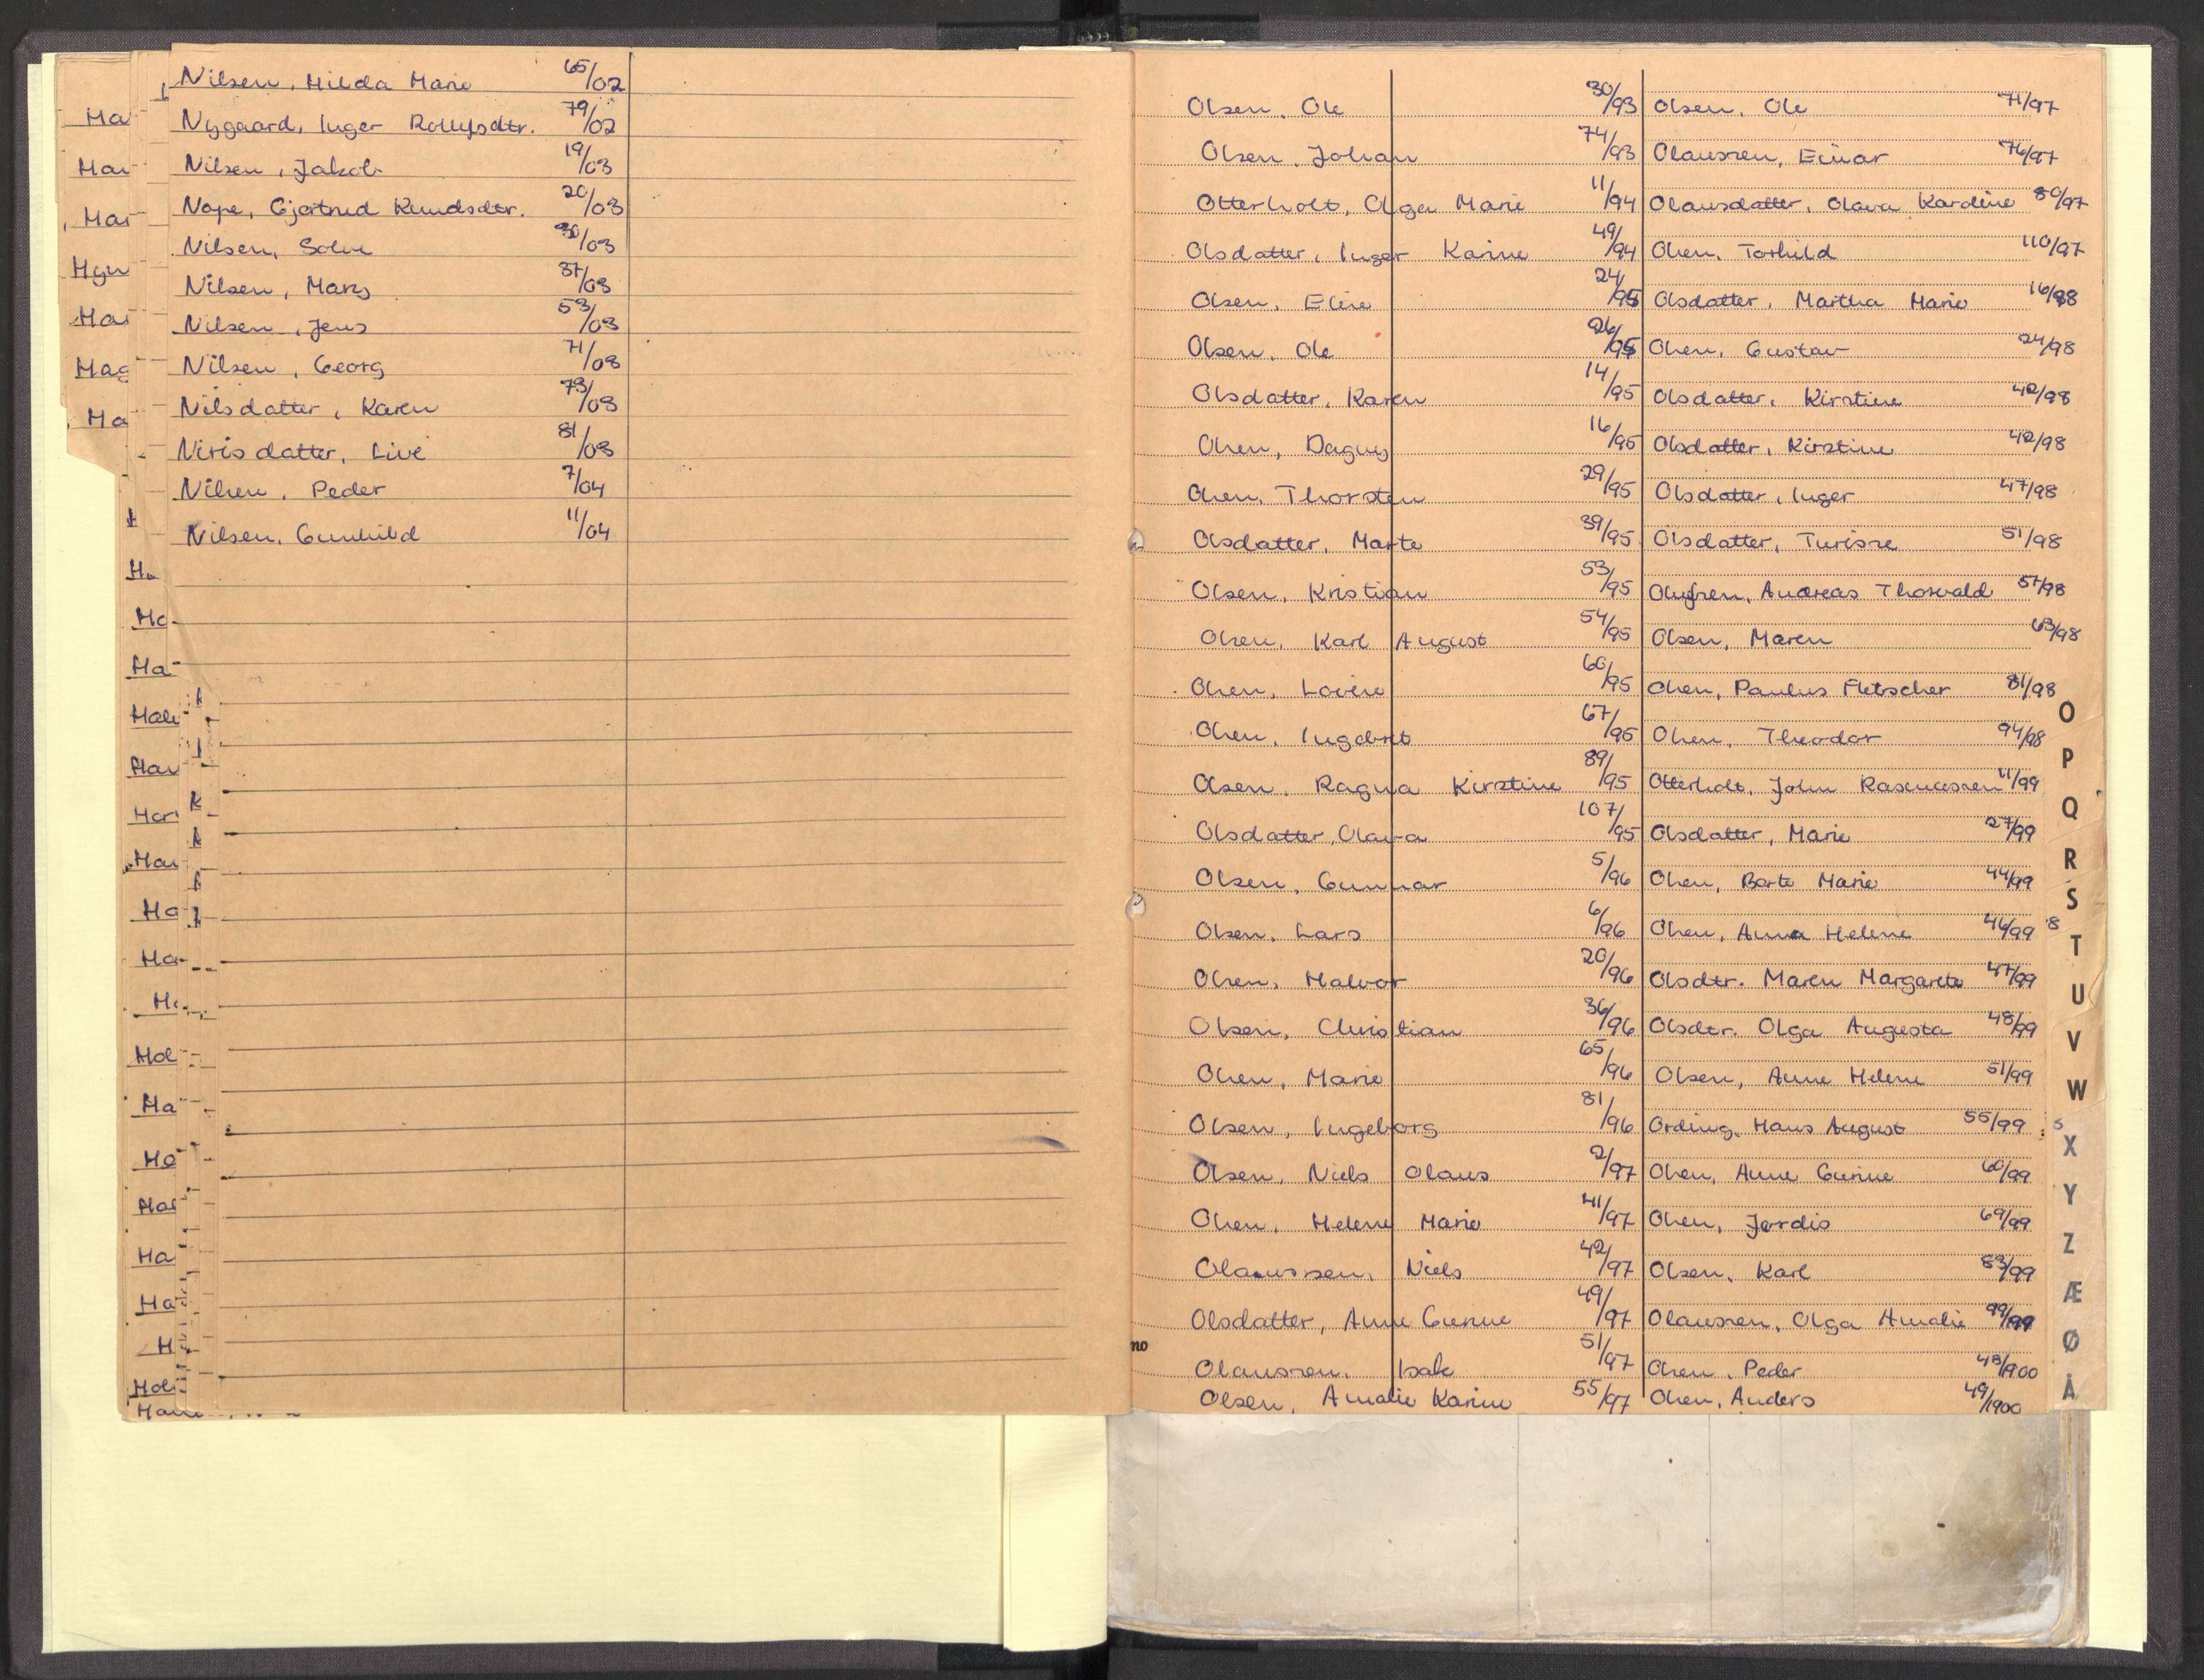 Nilsen, Hilda Marie 65/02
Nygaard, Inger Rollefsdtr. 79/02
Nilsen, Jakob 19/03
Nope, Gjertrud Knudsdtr. 20/03
Nilsen, 30/03
Nilsen, Mary 37/03
Nilsen, Jens 53/03
Nilsen, Georg 71/03
Nilsdatter, Karen 73/03
Nirisdatter, Live 81/03
Nilsen, Peder 7/04
Nilsen, Gunhild 11/04
Ma
Mar
Mar
Myr
Mar
Mag
Ma
Olsen, Ole 30/93
Olsen, Johan 74/93
Otterholt, Olga Marie 11/94
Olsdatter, Inger Karine 49/94
Olsen, Eline 24/95
Olsen, Ole 26/95
Olsdatter, Karen 14/95
Olsen, Dagny 16/95
Olsen, Thorsten 29/95
Olsdatter, Marte 39/95
Olsen, Kristian 53/95
Olsen, Karl August 54/95
Olsen, Lovise 60/95
Olsen, Ingebret 67/95
Olsen, Ragna Kirstine 89/95
Olsdatter, Olava 107/95
Olsen, Gunnar 5/96
Olsen, Lars 6/96
Olsen, Halvor 20/96
Olsen, Christian 36/96
Olsen, Marie 65/96
Olsen, Ingeborg 81/96
Olsen, Niels Olaus 2/97
Olsen, Helene Marie 41/97
Olaussen, Niels 42/97
Olsdatter, Anne Gurine 49/97
Olaussen, Isak 51/97
Olsen, Amalie Karine 55/97
Olsen, Ole 71/97
Olaussen, Einar 76/97
Olausdatter, Olava Karoline 80/97
Olsen, Torhild 110/97
Olsdatter, Martha Marie 16/98
Olsen, Gustav 24/98
Olsdatter, Kirstine 42/98
Olsdatter, Kirstine 42/98
Olsdatter, Inger 47/98
Olsdatter, Turine 51/98
Olufsen, Andreas Thorvald 57/98
Olsen, Maren 63/98
Olsen, Paulus Fletscher 81/98
Olsen, Theodor 94/98
Otterholt, John Rasmussen 11/99
Olsdatter, Marie 27/99
Olsen, Berte Marie 44/99
Olsen, Anna Helene 46/99
Olsdtr. Maren Margarete 47/99
Olsdtr. Olga Augusta 48/99
Olsen, Anne Helene 51/99
Ording, Hans August 55/99
Olsen, Anne Gurine 60/99
Olsen, Jordis 69/99
Olsen, Karl 83/99
Olaussen, Olga Amalie 99/99
Olsen, Peder 43/1900
Olsen, Anders 49/1900
O
P
Q
R
S
T
U
V
W
X
Y
Z
Æ
Ø
Å